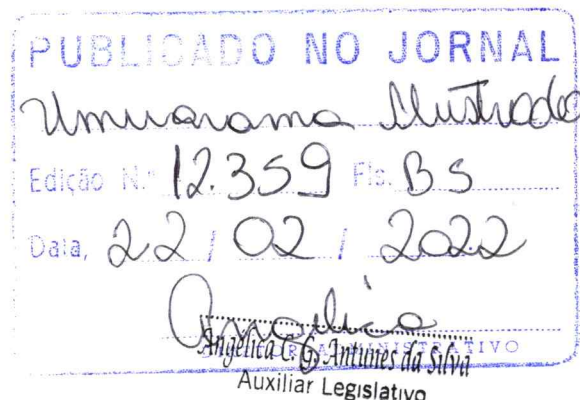 PUBLICADO NO JORNAL
Umuarama Ilustrado
Edição N.º 12.359 Fls. B5
Data, 22 / 02 / 2022
Angelica
Angélica C. G. Antunes da Silva
Auxiliar Legislativo